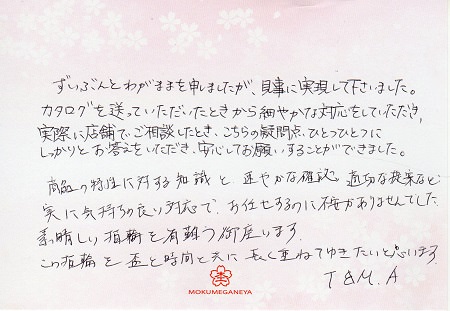 ずいぶんとわがままを申しましたが、見事に実現して下さいました。
カタログを送っていただいたときから細やかな対応をしていただき、
実際に店舗で、ご相談したとき、こちらの疑問点、ひとつひとつに
しっかりとお答えをいただき、安心してお願いすることができました。
商品の特性に対する知識と、速やかな確認。適切な提案など
実に気持ちの良い対応で、お任せするのに不安がありませんでした。
素晴しい指輪を有難う御座います。
この指輪を 時間と共に 長く重ねてゆきたいと思います。
T & M. A
MOKUMEGANEYA